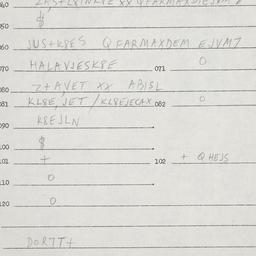 040 ZAS+LXINKPE XX QFARMAXDIEJVM 8
050 $
060 JUS+K8ES QFARMAXDEM EJVM7
070 HALAVJESK8E 071 0
080 7+AVET XX ABISL
081 KL8E,JET/KL8EJECAX 082 0
090 K8EJLN
100 $
101 + 102 + QHEJS
110 0
120 0
DORTT+